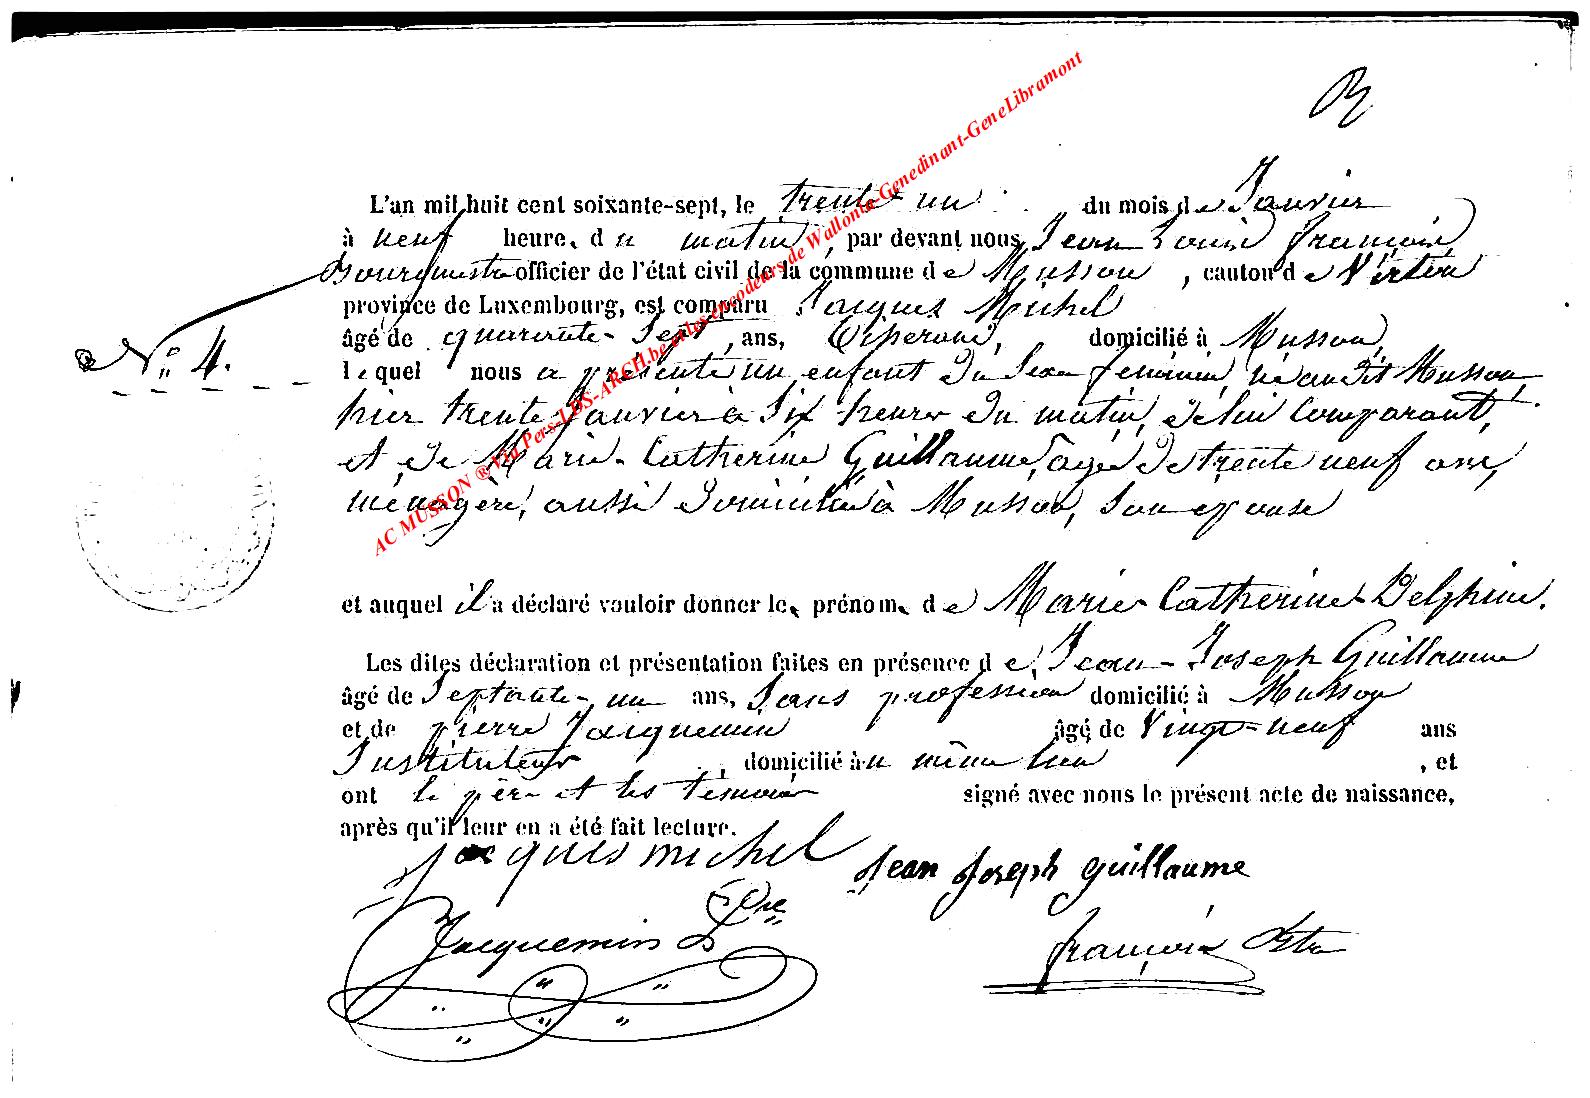 L'an mil huit cent soixante-sept, le trente un du mois de Janvier
à neuf heure, du matin, par devant nous Jean Louis François
Bourgmestre officier de l'état civil de la commune de Musson, canton de Virton
province de Luxembourg, est comparu Jacques Michel
âgé de quarante-sept, ans, Tisserand, domicilié à Musson,
N° 4.
lequel nous a présenté un enfant du sexe féminin, né au dit Musson,
hier trente Janvier à six heures du matin, de lui comparant,
et de Marie-Catherine Guillaume, agée de trente neuf ans,
ménagère, aussi domiciliée à Musson, son epouse
AC MUSSON ® Via Pers-LDS-ARCH.be et les encodeurs de Wallonie-Genedinant-GeneLibramont
et auquel il a déclaré vouloir donner les prénoms de Marie-Catherine-Delphine.
Les dites déclaration et présentation faites en présence de Jean-Joseph Guillaume
âgé de septante-un ans, sans profession domicilié à Musson
et de pierre Jacquemin âgé de Vingt-neuf ans
Instituteur, domicilié au même lieu, et
ont le père et les témoins signé avec nous le présent acte de naissance,
après qu'il leur en a été fait lecture.
jacques michel
Jean Joseph guillaume
Jacquemin
françois